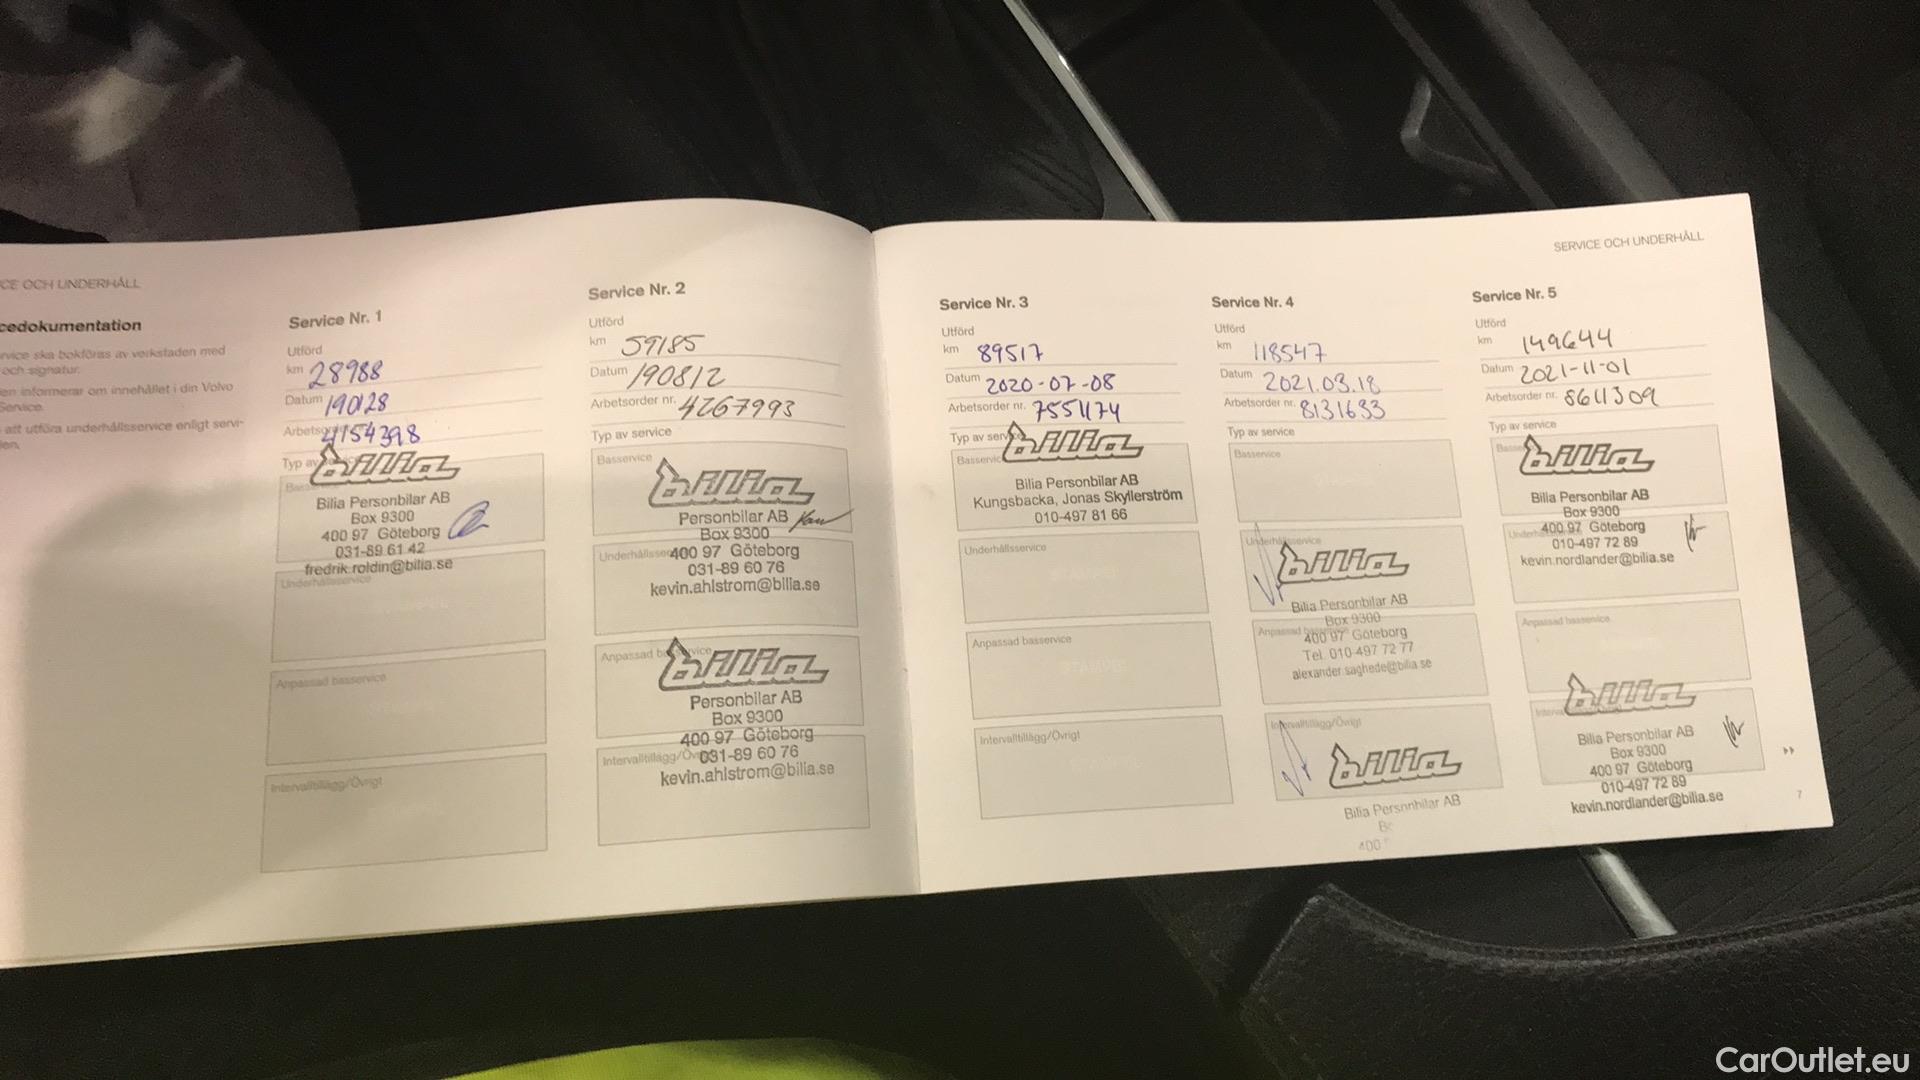 CE OCH UNDERHÅLL
cedokumentation
rvice ska bokföras av verkstaden med
och signatur.
en informerar om innehållet i din Volvo
Service.
att utföra underhållsservice enligt servi-
en.
Service Nr. 1
Utförd
km 28988
Datum 190128
Arbetsorder nr. 4154398
Typ av
bilia
Bilia Personbilar AB
Box 9300
400 97 Göteborg
031-89 61 42
fredrik.roldin@bilia.se
Underhållsservice
Anpassad basservice
Intervalltillägg/Övrigt
Service Nr. 2
Utförd
km 59185
Datum 190812
Arbetsorder nr. 4267993
Typ av service
Basservice
bilia
Personbilar AB
Box 9300
Underhållsservice
400 97 Göteborg
031-89 60 76
kevin.ahlstrom@bilia.se
Anpassad basservice
bilia
Personbilar AB
Box 9300
400 97 Göteborg
Intervalltillägg/Övrigt
031-89 60 76
kevin.ahlstrom@bilia.se
SERVICE OCH UNDERHÅLL
Service Nr. 3
Utförd
km 89517
Datum 2020-07-08
Arbetsorder nr. 7551174
Typ av service
Basservice
bilia
Bilia Personbilar AB
Kungsbacka, Jonas Skyllerström
010-497 81 66
Underhållsservice
Anpassad basservice
STÄMPEL
Intervalltillägg/Övrigt
Service Nr. 4
Utförd
km 118547
Datum 2021.03.18
Arbetsorder nr. 8131633
Typ av service
Basservice
Underhållsservice
bilia
Bilia Personbilar AB
Box 9300
Anpassad basservice
400 97 Göteborg
Tel. 010-497 72 77
alexander.saghede@bilia.se
Intervalltillägg/Övrigt
bilia
Bilia Personbilar AB
400
Service Nr. 5
Utförd
km 149644
Datum 2021-11-01
Arbetsorder nr. 8611309
Typ av service
bilia
Bilia Personbilar AB
Box 9300
400 97 Göteborg
010-497 72 89
kevin.nordlander@bilia.se
Anpassad basservice
bilia
Bilia Personbilar AB
Box 9300
400 97 Göteborg
010-497 72 89
kevin.nordlander@bilia.se
7
CarOutlet.eu